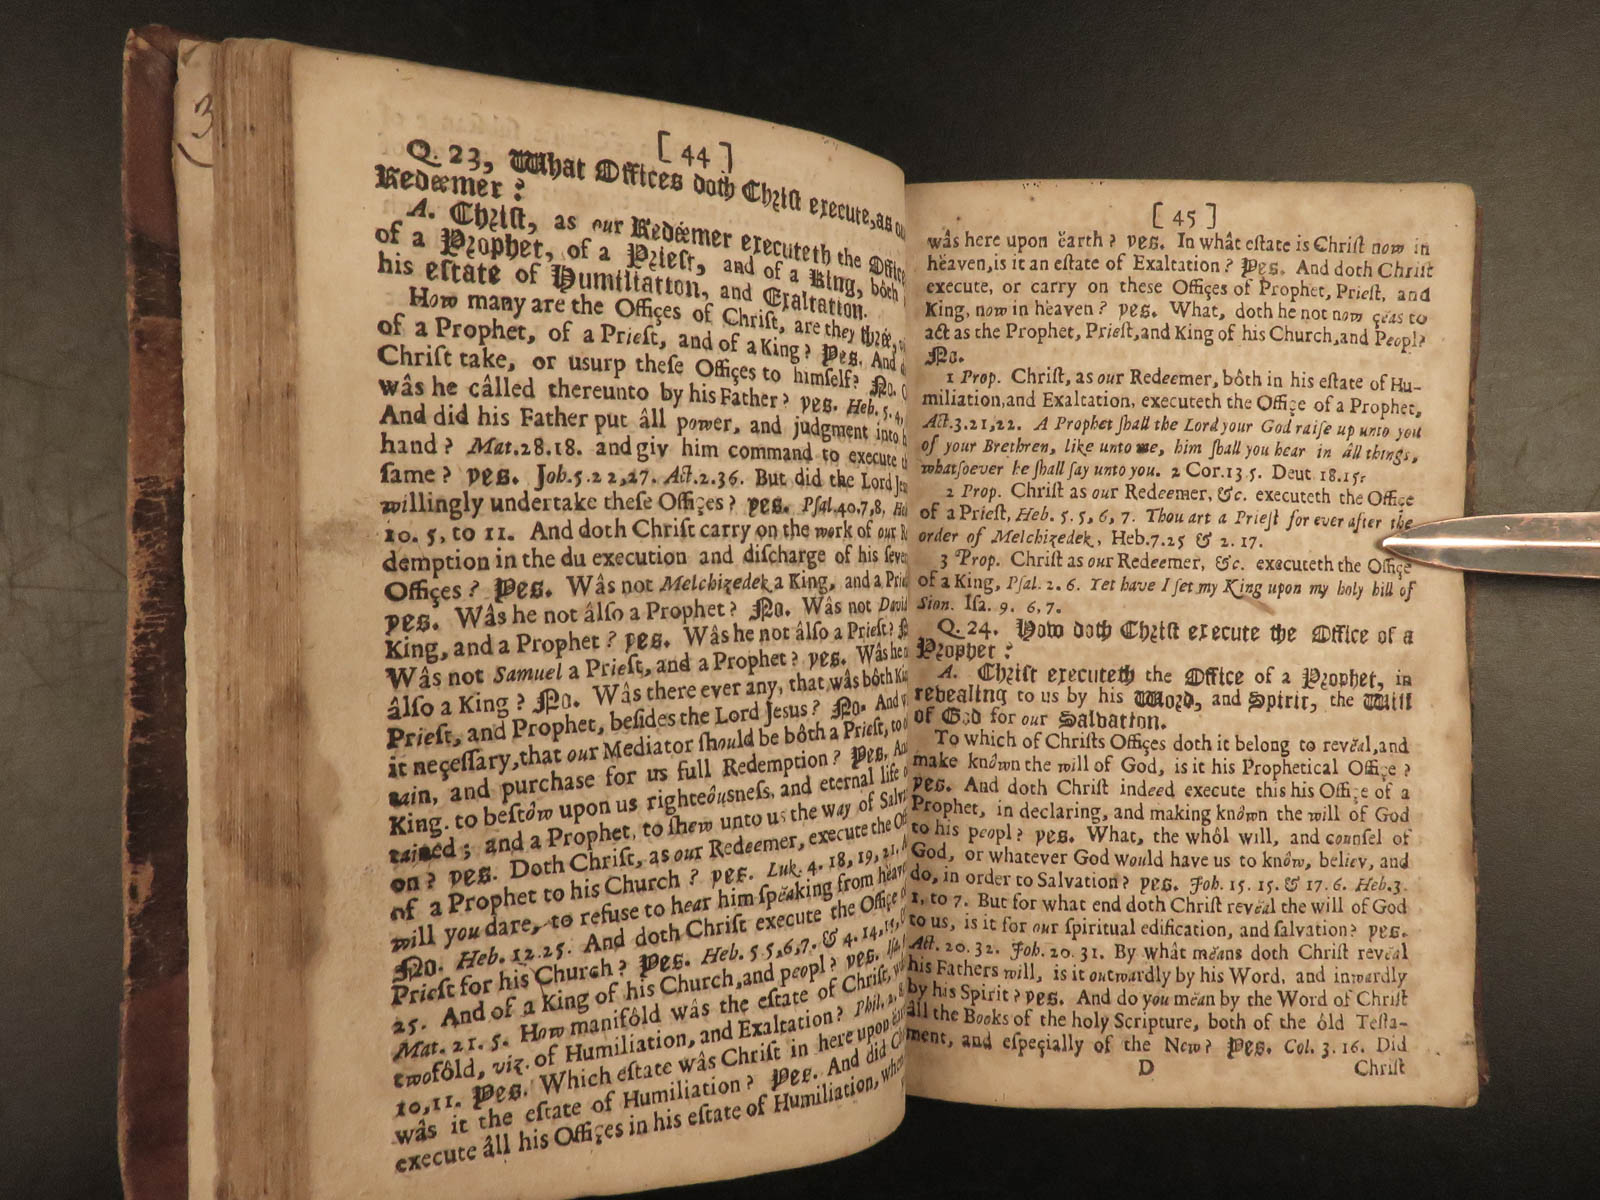 3
[ 44 ]
Q. 23, What Offices doth Chriſt execute, as
Redeemer?
A. Chriſt, as our Redeemer executeth the Office
of a Prophet, of a Prieſt, and of a King, bôth
his eſtate of Humiliation, and Exaltation.
How many are the Offiçes of Chriſt, are they thrée,
of a Prophet, of a Prieſt, and of a King? Yes. And
Chriſt take, or uſurp theſe Offiçes to himſelf? No.
wâs he câlled thereunto by his Father? yes. Heb. 5. 4,
And did his Father put âll power, and judgment into
hand? Mat. 28. 18. and giv him command to execute
ſame? yes. Joh. 5. 22, 27. Act. 2. 36. But did the Lord
willingly undertake theſe Offiçes? yes. Pſal. 40. 7, 8,
10. 5, to 11. And doth Chriſt carry on the work of our
demption in the du execution and diſcharge of his
Offiçes? Yes. Wâs not Melchizedek a King, and a
yes. Wâs he not âlſo a Prophet? No. Wâs not
King, and a Prophet? yes. Wâs he not âlſo a Prieſt?
Wâs not Samuel a Prieſt, and a Prophet? yes. Wâs he
âlſo a King? No. Wâs there ever any, that wâs bôth
Prieſt, and Prophet, beſides the Lord Jesus? No. And
it neçeſſary, that our Mediator ſhould be bôth a Prieſt, to
tain, and purchase for us full Redemption? Yes.
King. to beſtôw upon us righteôuſneſs, and eternal life
tained; and a Prophet, to ſhew unto us the way of
on? yes. Doth Chriſt, as our Redeemer, execute the
of a Prophet to his Church? yes. Luk. 4. 18, 19, 21.
will you dare, to refuſe to hear him ſpĕaking from
No. Heb. 12. 25. And doth Chriſt execute the Offiçe
Prieſt for his Church? Yes. Heb. 5 5, 6, 7. & 4. 14, 15,
25. And of a King of his Church, and peopl? yes.
Mat. 21. 5. How manifôld wâs the eſtate of Chriſt,
twofôld, viz. of Humiliation, and Exaltation? Phil. 2.
10, 11. Yes. Which eſtate wâs Chriſt in here upon
wâs it the eſtate of Humiliation? Yes. And did
execute âll his Offiçes in his eſtate of Humiliation,
[ 45 ]
wâs here upon ĕarth? yes. In whât eſtate is Chriſt now in
hĕaven, is it an eſtate of Exaltation? Yes. And doth Chriſt
execute, or carry on theſe Offiçes of Prophet, Prieſt, and
King, now in hĕaven? yes. What, doth he not now çĕas to
act as the Prophet, Prieſt, and King of his Church, and Peopl?
No.
1 Prop. Chriſt, as our Redeemer, bôth in his eſtate of Hu-
miliation, and Exaltation, executeth the Offiçe of a Prophet,
Act. 3. 21, 22. A Prophet ſhall the Lord your God raiſe up unto you
of your Brethren, like unto me, him ſhall you hear in âll things,
whatſoever he ſhall ſay unto you. 2 Cor. 13 5. Deut. 18. 15.
2 Prop. Chriſt as our Redeemer, &c. executeth the Offiçe
of a Prieſt, Heb. 5. 5, 6, 7. Thou art a Prieſt for ever after the
order of Melchizedek, Heb. 7. 25 & 2. 17.
3 Prop. Chriſt as our Redeemer, &c. executeth the Offiçe
of a King, Pſal. 2. 6. Yet have I ſet my King upon my holy hill of
Sion. Iſa. 9. 6, 7.
Q. 24. How doth Chriſt execute the Office of a
Prophet?
A. Chriſt executeth the Office of a Prophet, in
revealing to us by his Word, and Spirit, the Will
of God for our Salvation.
To which of Chriſts Offiçes doth it belong to revĕal, and
make knôwn the will of God, is it his Prophetical Offiçe?
yes. And doth Chriſt indeed execute this his Offiçe of a
Prophet, in declaring, and making knôwn the will of God
to his peopl? yes. What, the whôl will, and counſel of
God, or whatever God would have us to knôw, believ, and
do, in order to Salvation? yes. Joh. 15. 15. & 17. 6. Heb. 3.
1, to 7. But for what end doth Chriſt revĕal the will of God
to us, is it for our ſpiritual edification, and ſalvation? yes.
Act. 20. 32. Joh. 20. 31. By whât mĕans doth Chriſt revĕal
his Fathers will, is it outwardly by his Word, and inwardly
by his Spirit? yes. And do you mĕan by the Word of Chriſt
âll the Books of the holy Scripture, both of the ôld Teſta-
ment, and eſpeçially of the New? Yes. Col. 3. 16. Did
D Chriſt